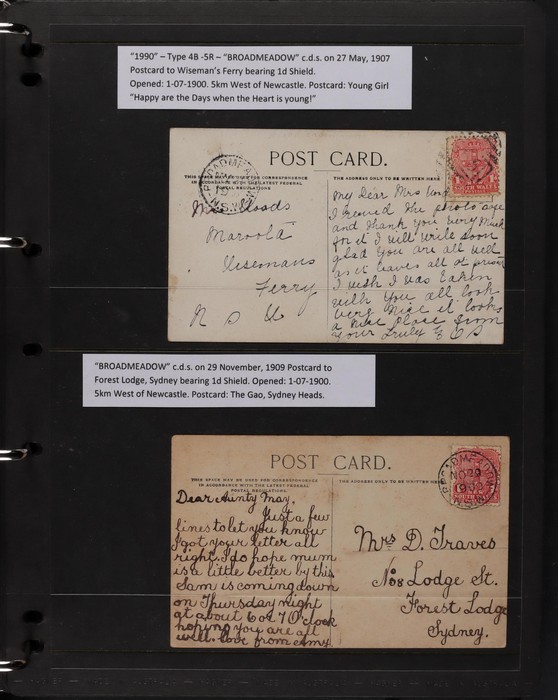 "1990" – Type 4B -5R – "BROADMEADOW" c.d.s. on 27 May, 1907
Postcard to Wiseman's Ferry bearing 1d Shield.
Opened: 1-07-1900. 5km West of Newcastle. Postcard: Young Girl
"Happy are the Days when the Heart is young!"
POST CARD.
THIS SPACE MAY BE USED FOR CORRESPONDENCE
IN ACCORDANCE WITH THE LATEST FEDERAL
POSTAL REGULATIONS
THE ADDRESS ONLY TO BE WRITTEN HERE
BROADMEADOW
N.S.W
Mrs Woods
Maroota
Wisemans
Ferry
N S W
My Dear Mrs
I received the
and thank you very much
for it I will write soon
glad you are all well
as it leaves all at
I wish I was taken
with you all look
very nice it looks
a nice place from
your truly
"BROADMEADOW" c.d.s. on 29 November, 1909 Postcard to
Forest Lodge, Sydney bearing 1d Shield. Opened: 1-07-1900.
5km West of Newcastle. Postcard: The Gao, Sydney Heads.
POST CARD.
THIS SPACE MAY BE USED FOR CORRESPONDENCE
IN ACCORDANCE WITH THE LATEST FEDERAL
POSTAL REGULATIONS.
THE ADDRESS ONLY TO BE WRITTEN HERE
BROADMEADOW
NO 29
1909
N.S.W
Dear Aunty May,
Just a few
lines to let you know
I got your letter all
right. I do hope mum
is a little better by this
Sam is coming down
on Thursday night
at about 6 or 7 O'clock
hoping you are all
well. love from
Mrs D. Traves
No 8 Lodge St.
Forest Lodge
Sydney.